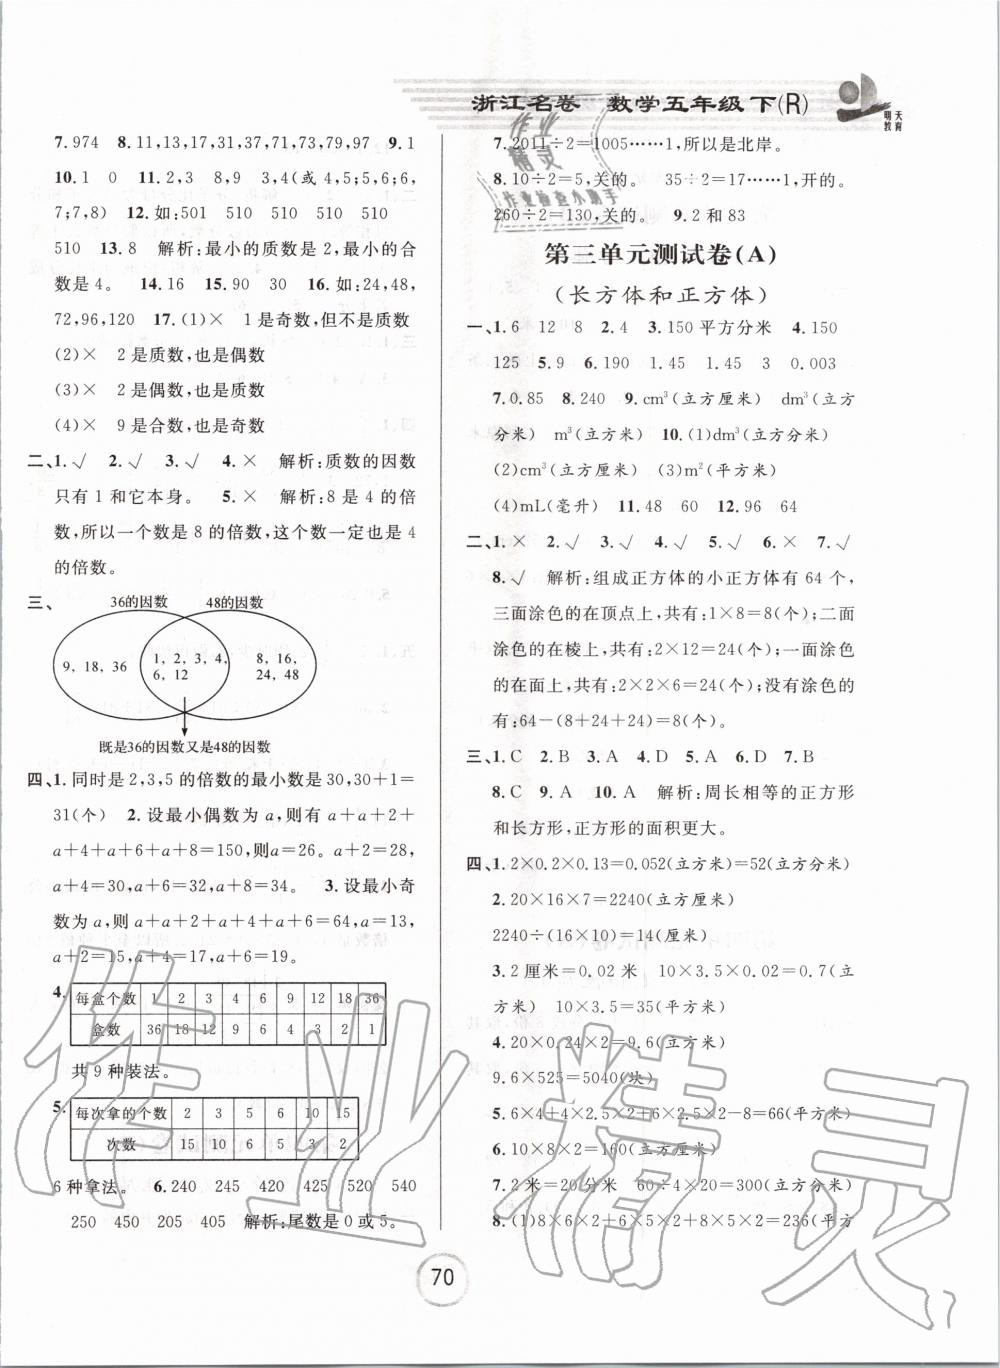 浙江名卷 数学五年级下(R)
明天教育
7.974 8.11,13,17,31,37,71,73,79,97 9.1
10.1 0 11.2,3 8,9 3,4(或4,5;5,6;6,
7;7,8) 12.如:501 510 510 510 510
510 13.8 解析:最小的质数是2,最小的合
数是4。 14.16 15.90 30 16.如:24,48,
72,96,120 17.(1)× 1是奇数,但不是质数
(2)× 2是质数,也是偶数
(3)× 2是偶数,也是质数
(4)× 9是合数,也是奇数
二、1.√ 2.√ 3.√ 4.× 解析:质数的因数
只有1和它本身。 5.× 解析:8是4的倍
数,所以一个数是8的倍数,这个数一定也是4
的倍数。
三、
36的因数 48的因数
9, 18, 36 1, 2, 3, 4, 6, 12 8, 16, 24, 48
既是36的因数又是48的因数
四、1.同时是2,3,5的倍数的最小数是30,30+1=
31(个) 2.设最小偶数为a,则有a+a+2+
a+4+a+6+a+8=150,则a=26。a+2=28,
a+4=30,a+6=32,a+8=34。 3.设最小奇
数为a,则a+a+2+a+4+a+6=64,a=13,
a+2=15,a+4=17,a+6=19。
4.
每盒个数 1 2 3 4 6 9 12 18 36
盒数 36 18 12 9 6 4 3 2 1
共9种装法。
5.
每次拿的个数 2 3 5 6 10 15
次数 15 10 6 5 3 2
6种拿法。 6.240 245 420 425 520 540
250 450 205 405 解析:尾数是0或5。
7.2011÷2=1005……1,所以是北岸。
8.10÷2=5,关的。 35÷2=17……1,开的。
260÷2=130,关的。 9.2和83
第三单元测试卷(A)
(长方体和正方体)
一、1.6 12 8 2.4 3.150平方分米 4.150
125 5.9 6.190 1.45 1.45 3 0.003
7.0.85 8.240 9.cm³(立方厘米) dm³(立方
分米) m³(立方米) 10.(1)dm³(立方分米)
(2)cm³(立方厘米) (3)m²(平方米)
(4)mL(毫升) 11.48 60 12.96 64
二、1.× 2.√ 3.√ 4.√ 5.√ 6.× 7.√
8.√ 解析:组成正方体的小正方体有64个,
三面涂色的在顶点上,共有:1×8=8(个);二面
涂色的在棱上,共有:2×12=24(个);一面涂色
的在面上,共有:2×2×6=24(个);没有涂色的
有:64-(8+24+24)=8(个)。
三、1.C 2.B 3.A 4.D 5.A 6.D 7.B
8.C 9.A 10.A 解析:周长相等的正方形
和长方形,正方形的面积更大。
四、1.2×0.2×0.13=0.052(立方米)=52(立方分米)
2.20×16×7=2240(立方厘米)
2240÷(16×10)=14(厘米)
3.2厘米=0.02米 10×3.5×0.02=0.7(立
方米) 10×3.5=35(平方米)
4.20×0.24×2=9.6(立方米)
9.6×525=5040(块)
5.6×4+4×2.5×2+6×2.5×2-8=66(平方米)
6.10×8×2=160(立方厘米)
7.2米=20分米 60÷4×20=300(立方分米)
8.(1)8×6×2+6×5×2+8×5×2=236(平方
70
作业精灵
作业精灵
作业检查小助手